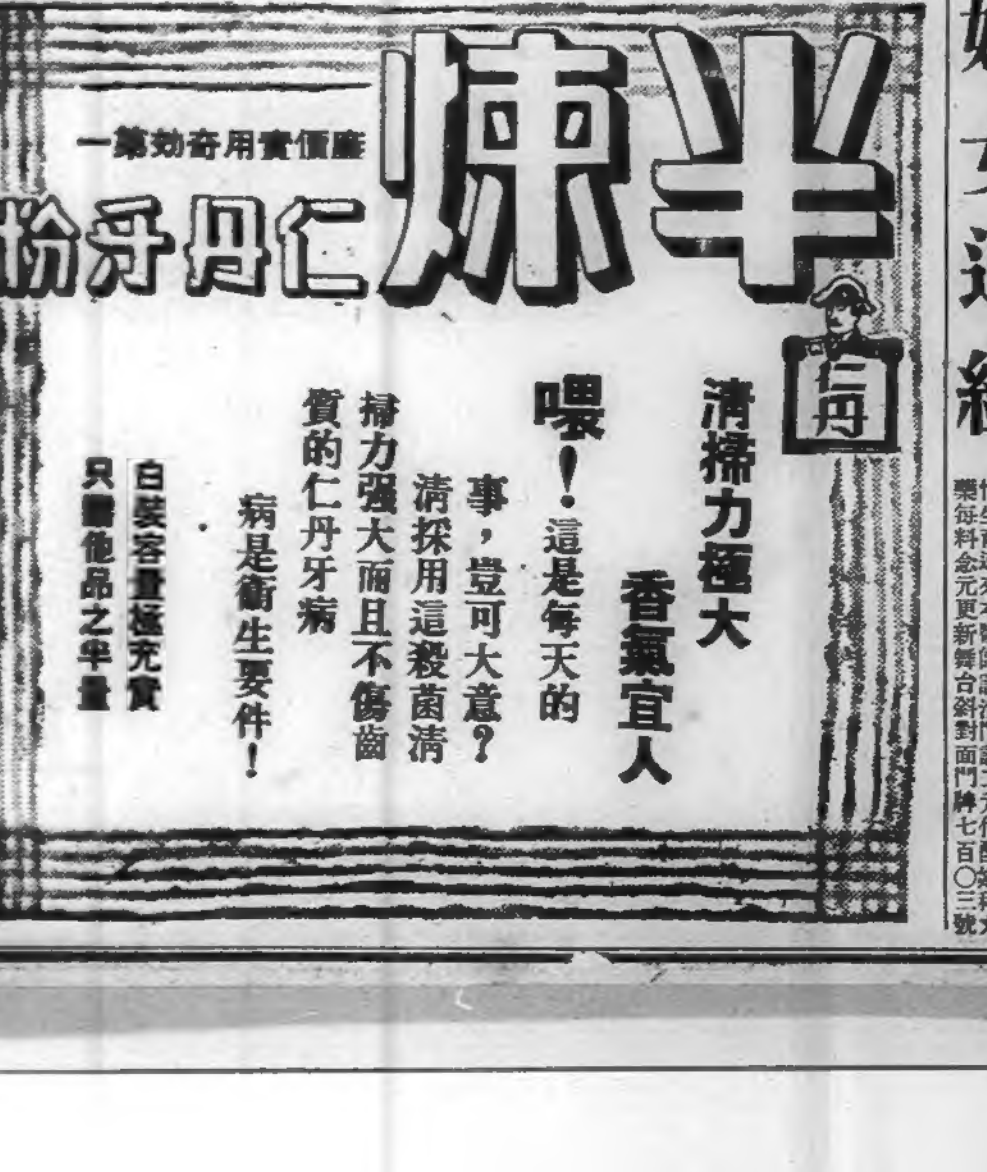 半煉
廉價實用奇効第一
仁丹牙粉
仁丹
清掃力極大
香氣宜人
喂！這是每天的
事，豈可大意？
清採用這殺菌清
掃力强大而且不傷齒
質的仁丹牙病
病是衛生要件！
白裝容量極充實
只需他品之半量
女
藥每料念元更新舞台斜對面門牌七百〇三號